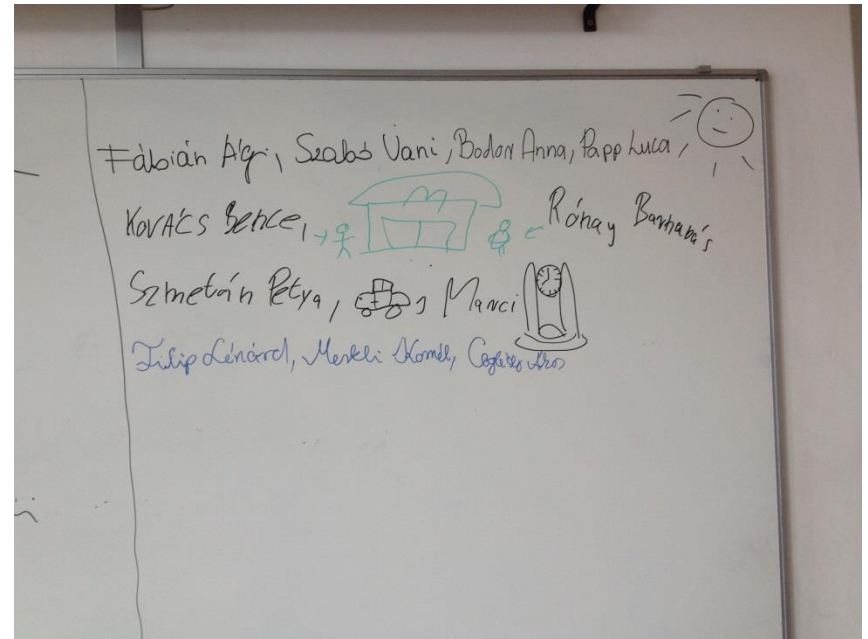 Fábián Ági, Szabó Vani, Bodor Anna, Papp Luca,
Kovács Bence, M Rónay Barnabás
Szmetán Petya, Marci
Filip Lénárd, Merkli Kornél,